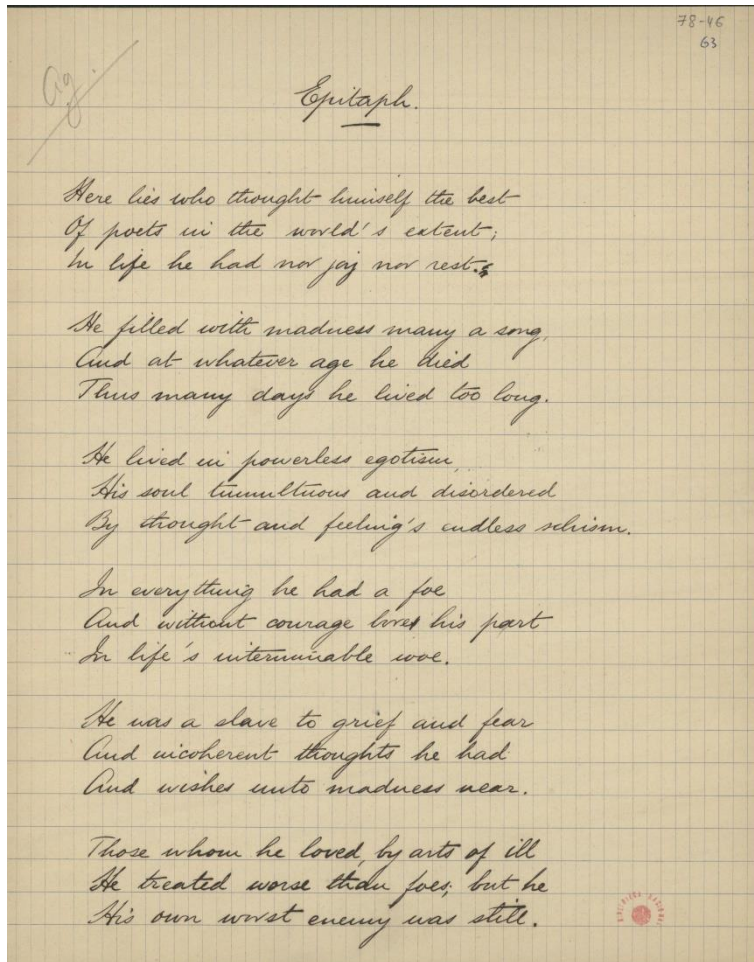 78-46
63
Ag.
Epitaph.
Here lies who thought himself the best
Of poets in the world's extent;
In life he had nor joy nor rest.
He filled with madness many a song,
And at whatever age he died
Thus many days he lived too long.
He lived in powerless egotism,
His soul tumultuous and disordered
By thought and feeling's endless schism.
In everything he had a foe
And without courage bore his part
In life's interminable woe.
He was a slave to grief and fear
And incoherent thoughts he had
And wishes unto madness near.
Those whom he loved, by arts of ill
He treated worse than foes; but he
His own worst enemy was still.